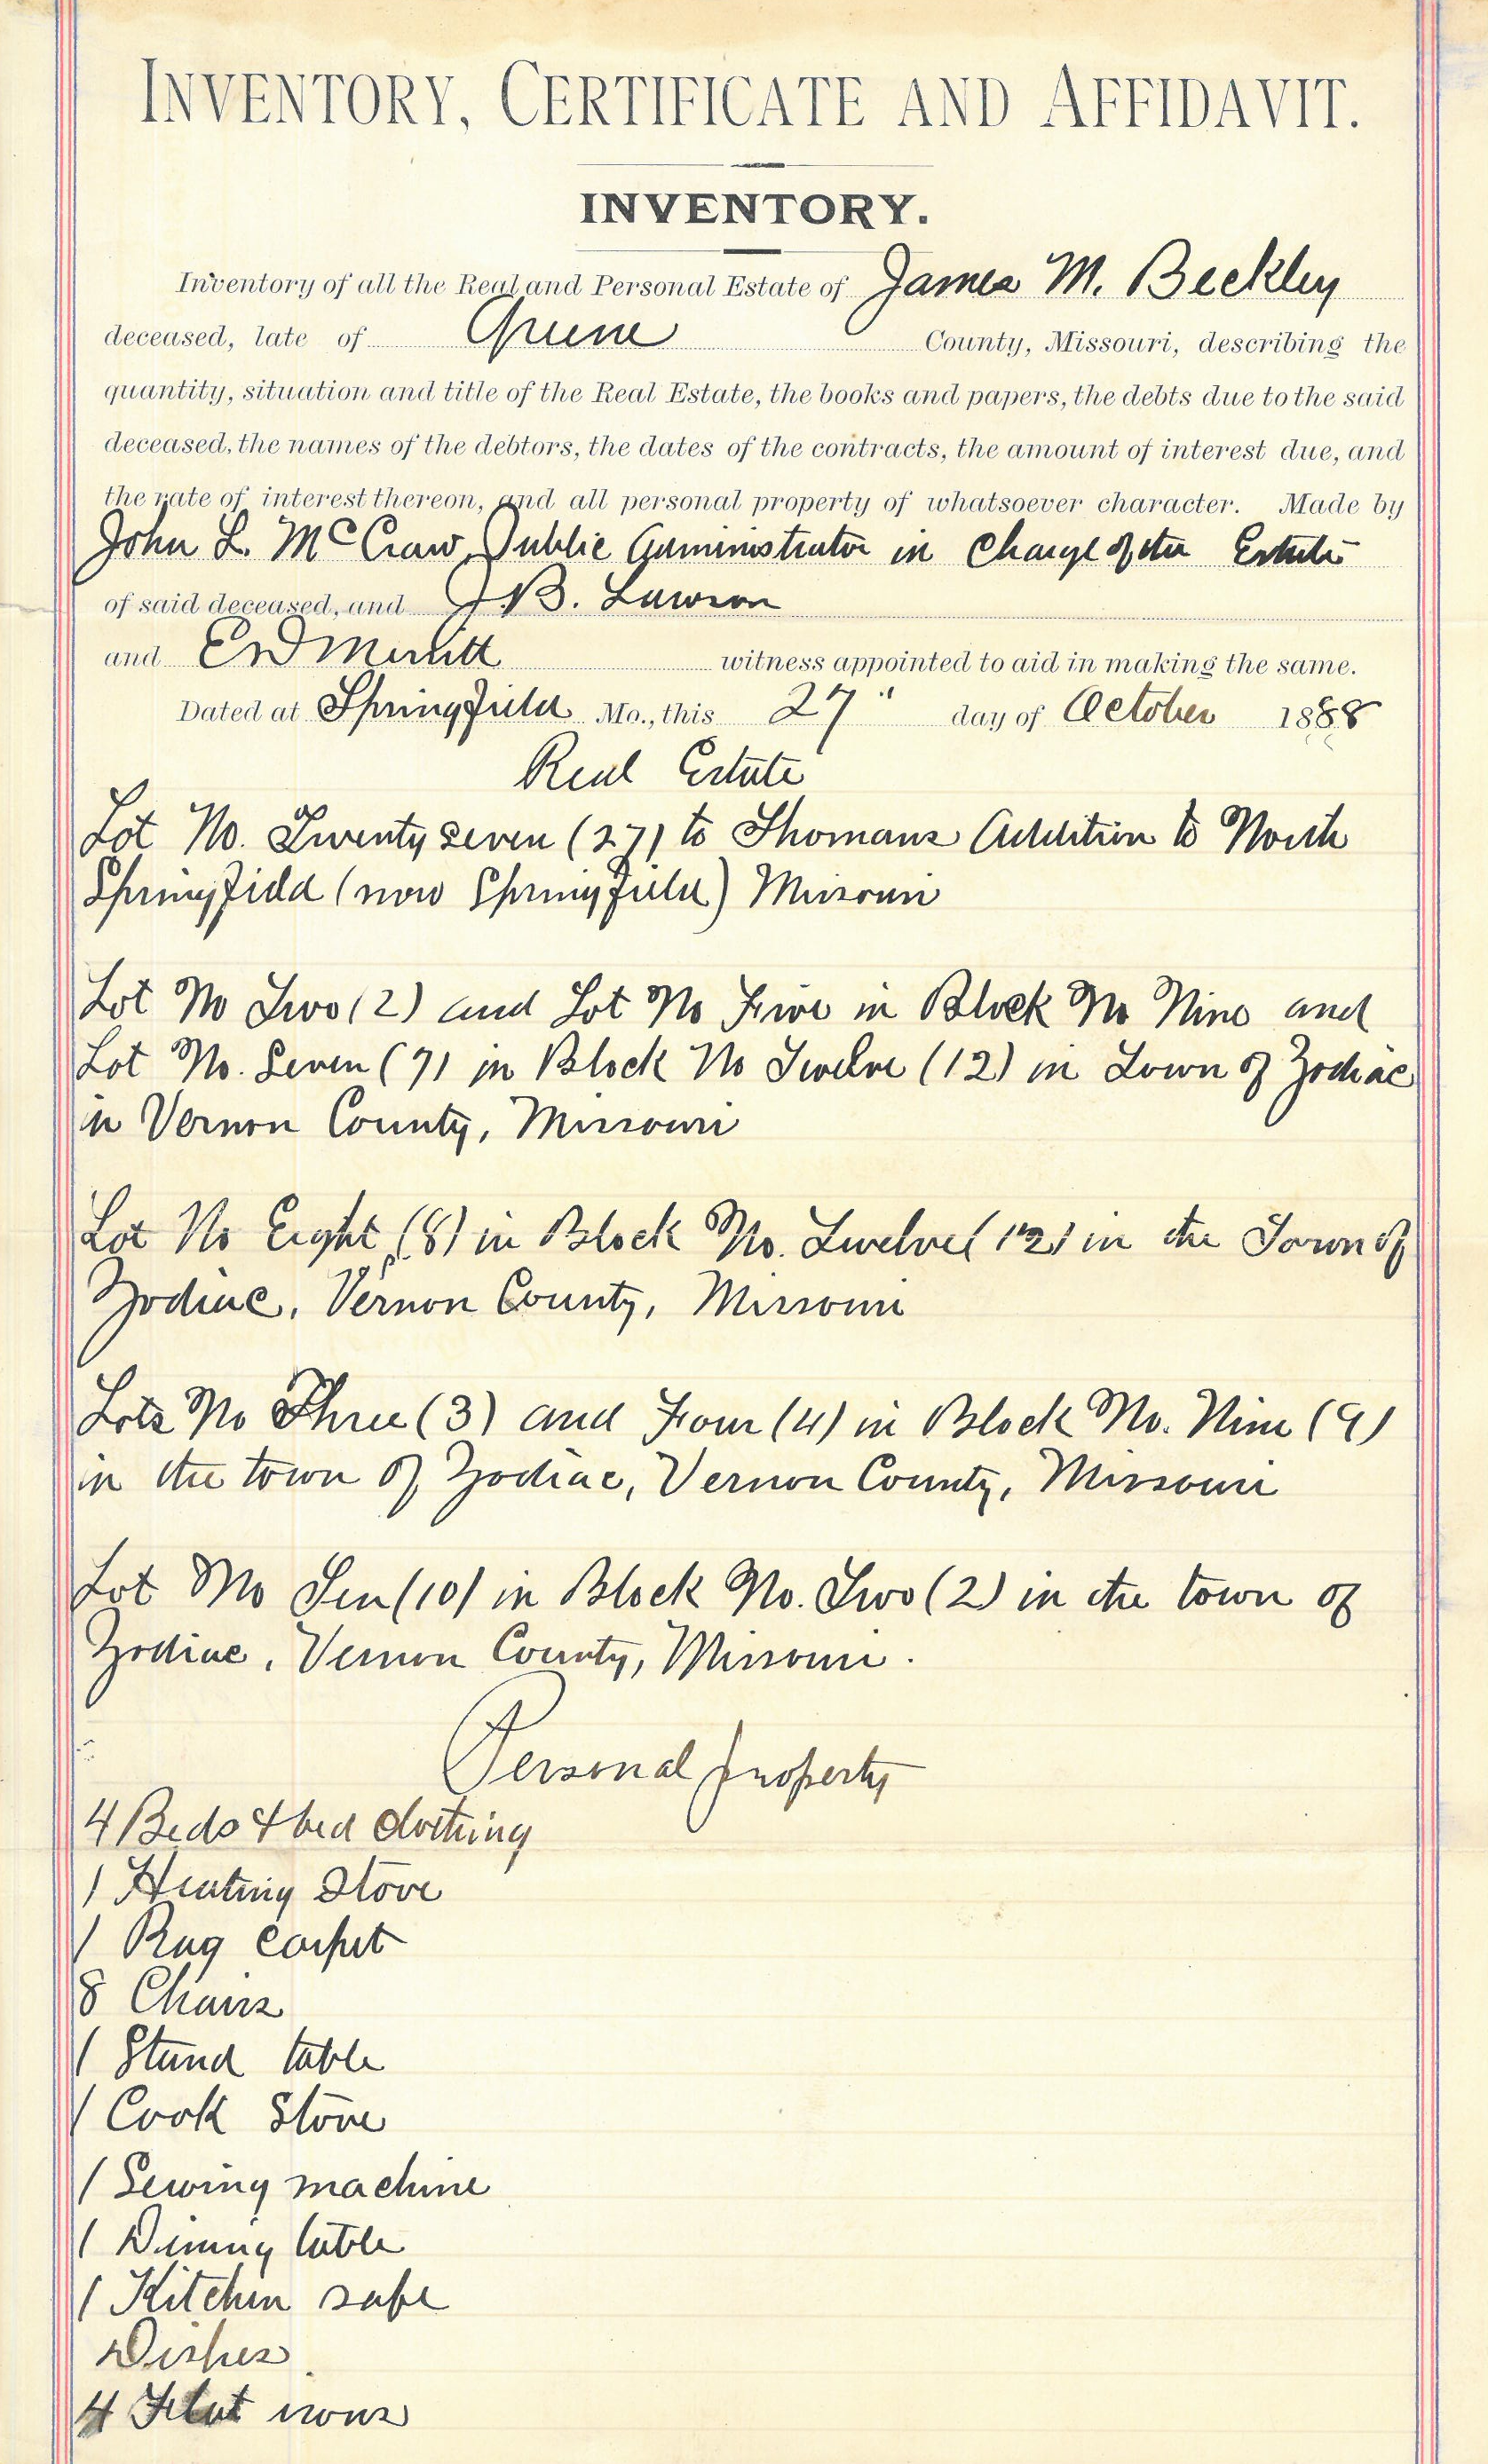 INVENTORY, CERTIFICATE AND AFFIDAVIT.
INVENTORY.
Inventory of all the Real and Personal Estate of James M. Beckley
deceased, late of Greene County, Missouri, describing the
quantity, situation and title of the Real Estate, the books and papers, the debts due to the said
deceased, the names of the debtors, the dates of the contracts, the amount of interest due, and
the rate of interest thereon, and all personal property of whatsoever character. Made by
John L. McCraw Public Administrator in Charge of the Estate
of said deceased, and J. B. Lawson
and E D Merritt witness appointed to aid in making the same.
Dated at Springfield Mo., this 27" day of October 1888
Real Estate
Lot No. Twenty seven (27) to Thomans Addition to North
Springfield (now Springfield) Missouri
Lot No Two (2) and Lot No Five in Block No Nine and
Lot No. Seven (7) in Block No Twelve (12) in Town of Zodiac
in Vernon County, Missouri
Lot No Eight (8) in Block No. Twelve (12) in the Town of
Zodiac, Vernon County, Missouri
Lots No Three (3) and Four (4) in Block No. Nine (9)
in the town of Zodiac, Vernon County, Missouri
Lot No Ten (10) in Block No. Two (2) in the town of
Zodiac, Vernon County, Missouri.
Personal property
4 Beds & bed clothing
1 Heating Stove
1 Rag carpet
8 Chairs
1 Stand table
1 Cook Stove
1 Sewing machine
1 Dining table
1 Kitchen safe
Dishes
4 Flat irons